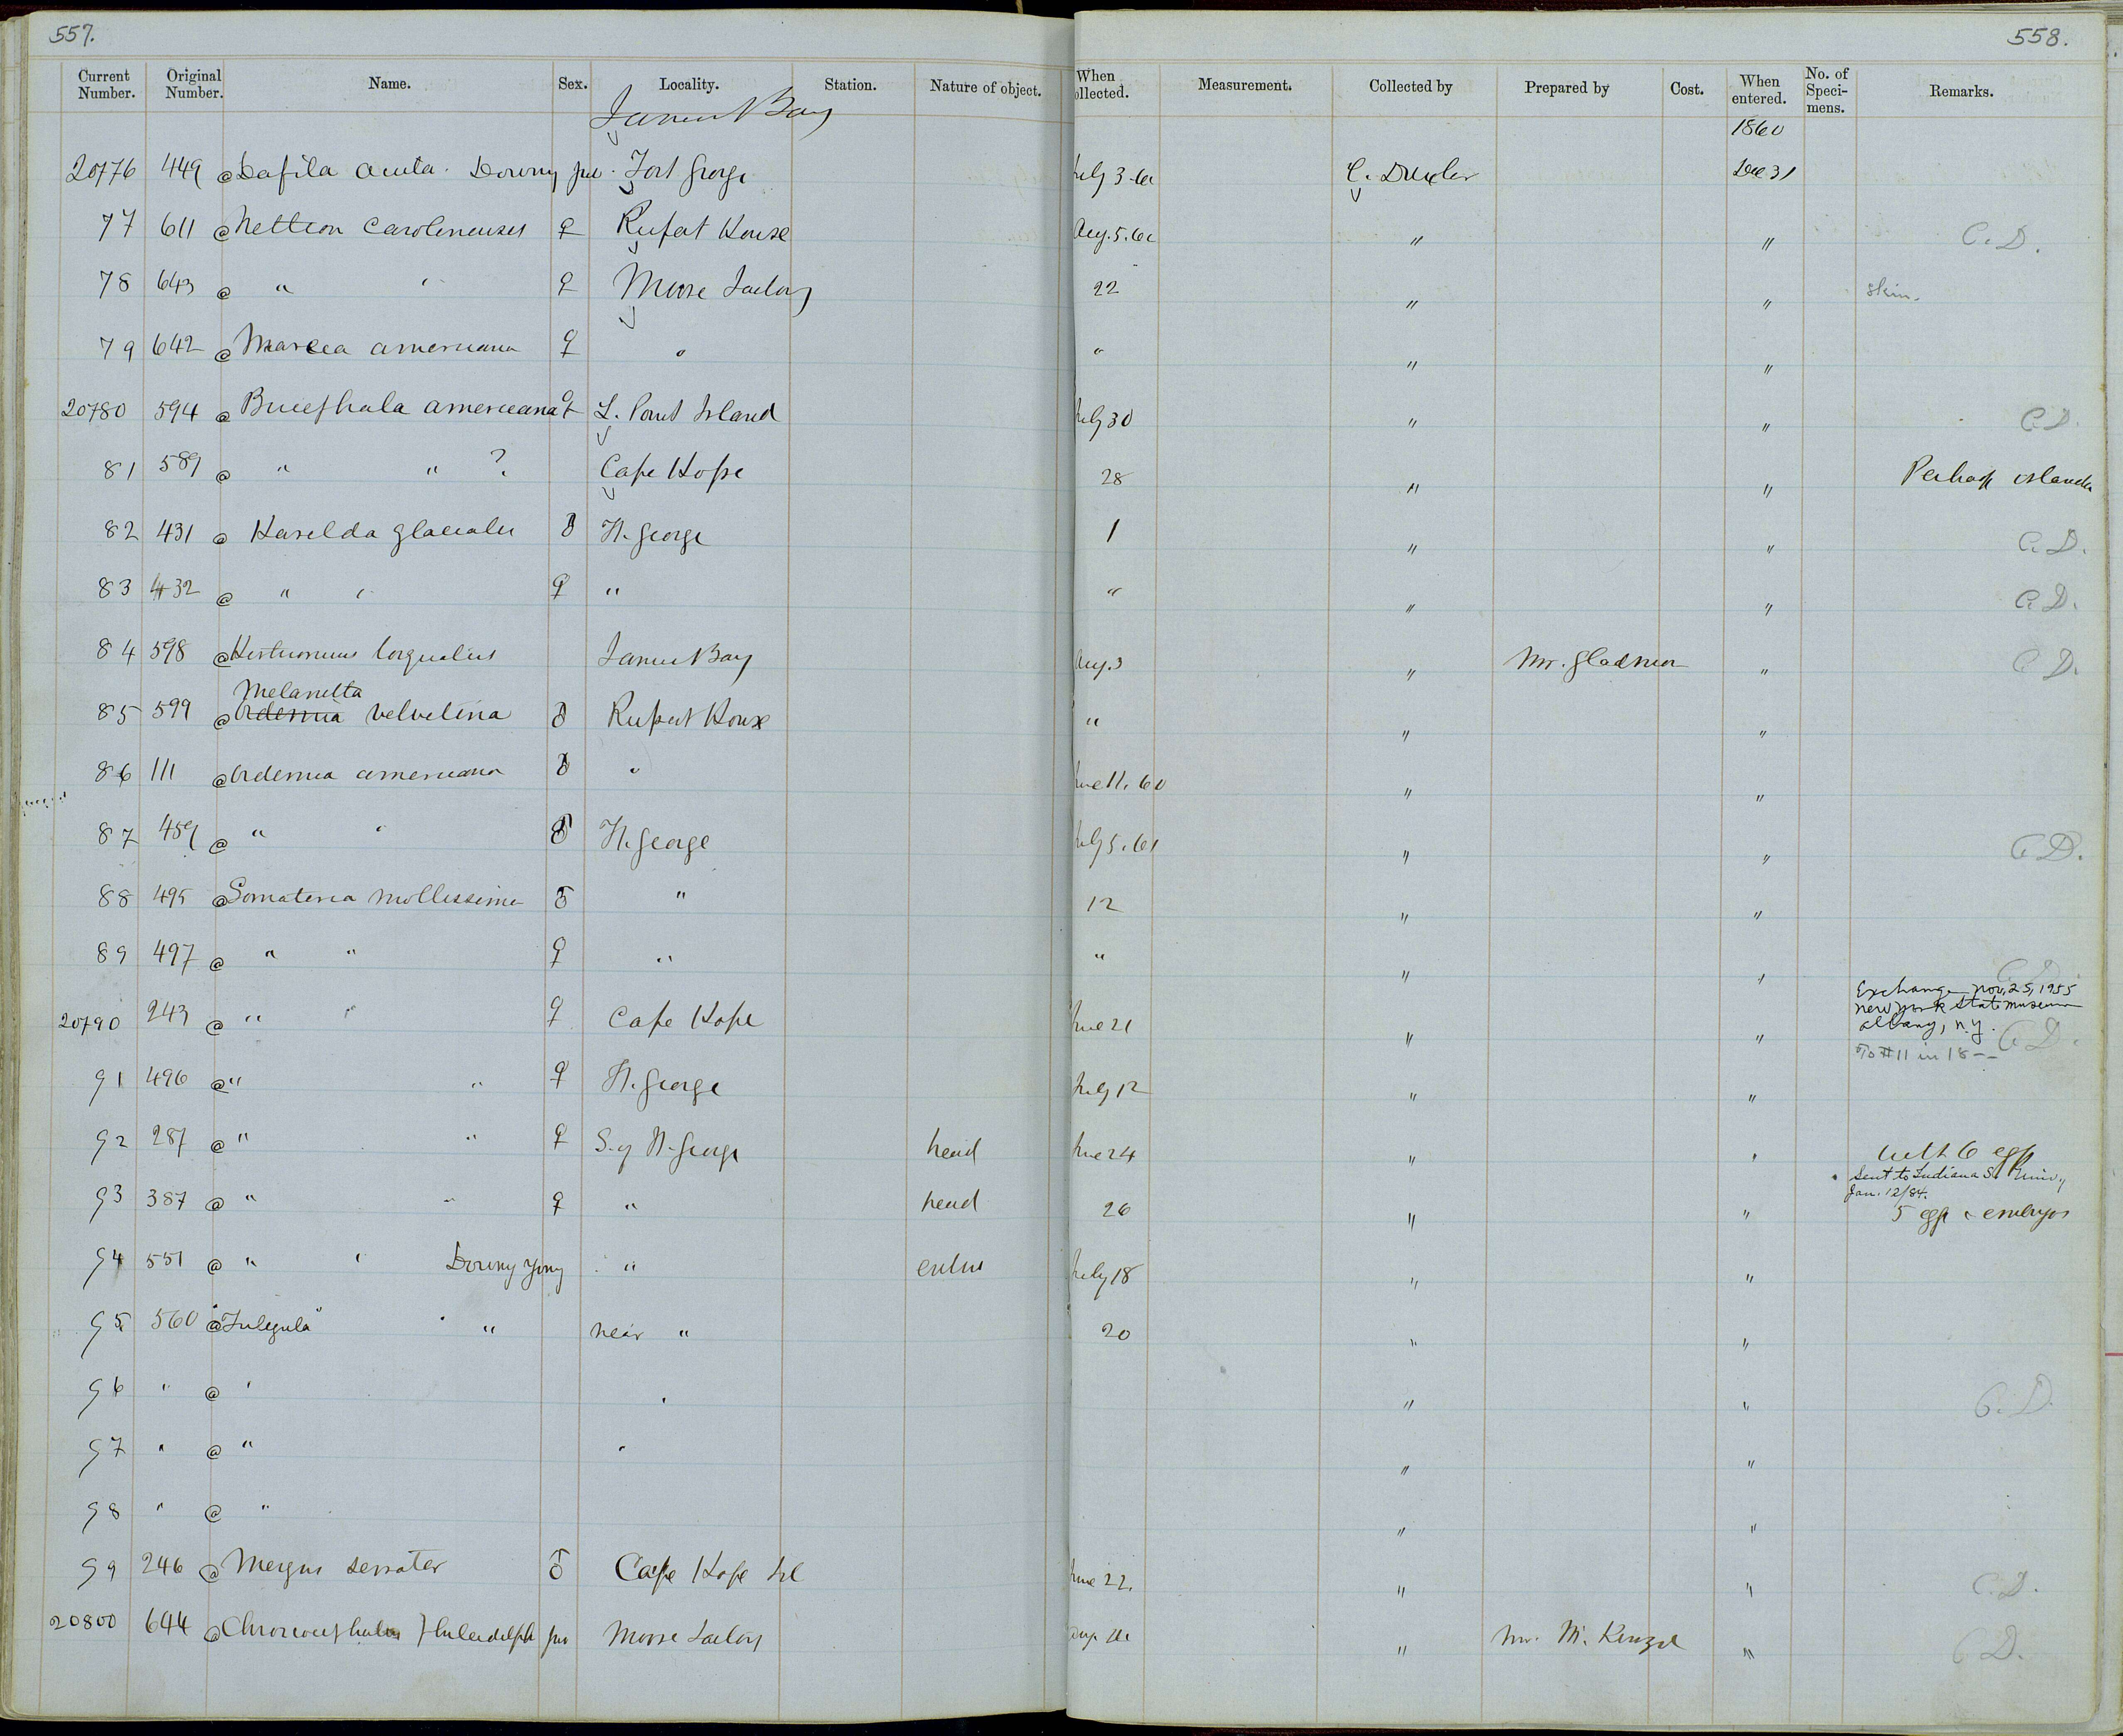 557.
558.
Current Number. Original Number. Name. Sex. Locality. Station. Nature of object. When ollected. Measurement. Collected by Prepared by Cost. When entered. No. of Speci-mens. Remarks.
James Bay 1860
20776 449 @ Dafila acuta. Downy juv. Fort George July 3.60 C. Drexler Dec 31
77 611 @ Nettion carolinensis ♀ Rupert House Aug. 5. 60 " " C. D.
78 643 @ " " ♀ Moose Factory 22 " " skin.
79 642 @ Mareca americana ♀ " " " "
20780 594 @ Bucephala americana ♀ L. Point Island July 30 " " C. D.
81 589 @ " " ? Cape Hope 28 " " Perhaps islandica
82 431 @ Harelda glacialis ♂ Ft. George 1 " " C. D.
83 432 @ " " ♀ " " " " C. D.
84 598 @ Histrionicus torquatus James Bay Aug. 3 " Mr. Gladman " C D.
85 599 @ Oidemia Melanetta velvetina ♂ Rupert House " " "
86 111 @ Oidemia americana ♂ " June 11. 60 " "
87 459 @ " " ♂ Ft. George July 5. 61 " " C. D.
88 495 @ Somateria mollissima ♂ " 12 " "
89 497 @ " " ♀ " " " " C. D.
20790 243 @ " " ♀ Cape Hope June 21 " " Exchange Nov. 25, 1955
New York State Museum
Albany, N.Y. C. D.
To #11 in 18--
91 496 @ " " ♀ Ft. George July 12 " "
92 287 @ " " ♀ S. of Ft. George head June 24 " " with 6 eggs
93 387 @ " " ♀ " head 26 " " Sent to Indiana St. Univ.,
Jan. 12/84.
5 eggs & embryos
94 551 @ " " Downy young " entire July 18 " "
95 560 @ "Fuligula" " " near " 20 " "
96 " @ " " " " C. D.
97 " @ " " " "
98 " @ " " "
99 246 @ Mergus serrator ♂ Cape Hope Isl June 22. " " C. D.
20800 644 @ Chroicocephalus Philadelph juv Moose Factory Aug. " Mr. McKenzie " C D.